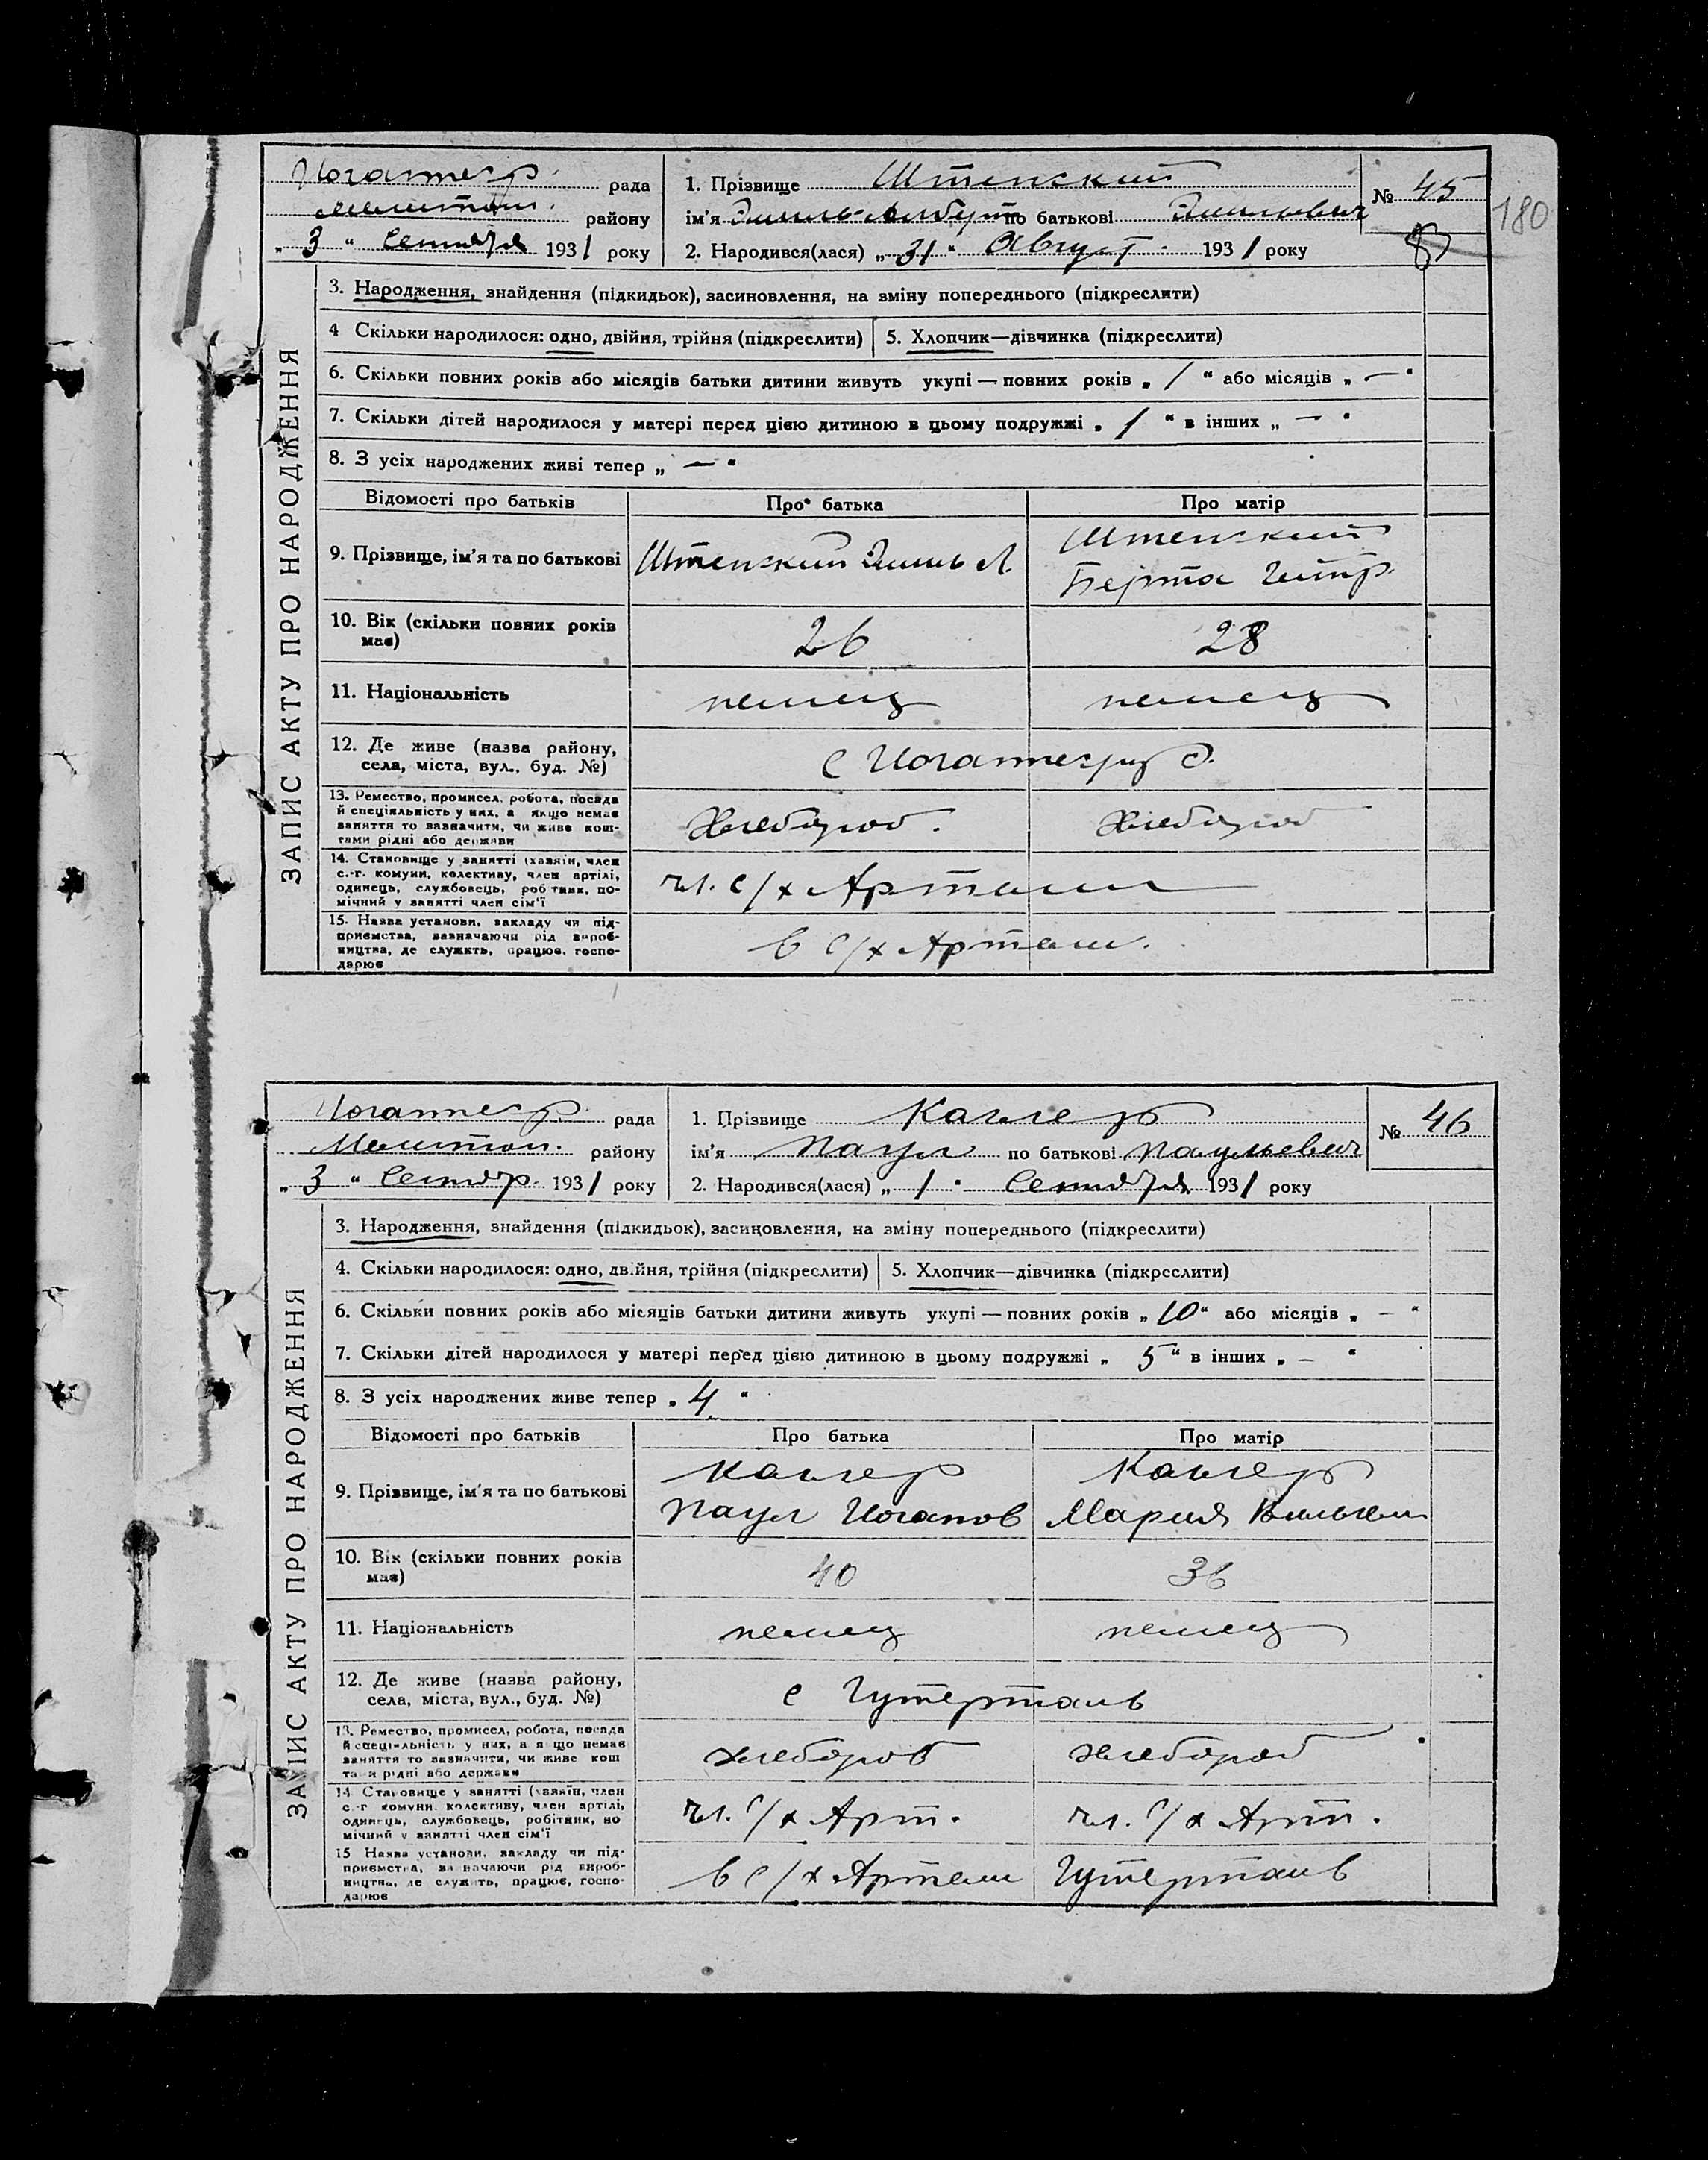 180
ЗАПИС АКТУ ПРО НАРОДЖЕННЯ
рада
Мелитоп. району
„ 3 “ Сентября 1931 року
1. Прізвище Штенский
ім'я Эмиль-Альберт по батькові Эмильевич
2. Народився(лася) „ 31 “ Август 1931 року
№ 45
3. Народження, знайдення (підкидьок), засиновлення, на зміну попереднього (підкреслити)
4 Скільки народилося: одно, двійня, трійня (підкреслити)
5. Хлопчик—дівчинка (підкреслити)
6. Скільки повних років або місяців батьки дитини живуть укупі — повних років „ 1 “ або місяців „ — “
7. Скільки дітей народилося у матері перед цією дитиною в цьому подружжі „ 1 “ в інших „ — “
8. З усіх народжених живі тепер „ — “
Відомості про батьків
Про батька
Про матір
9. Прізвище, ім'я та по батькові
Штенский Эмиль А.
Штенский
Берта
10. Вік (скільки повних років
має)
26
28
11. Національність
немец
немец
12. Де живе (назва району,
села, міста, вул., буд. №)
13. Ремество, промисел, робота, посада
й спеціяльність у них, а якщо немає
заняття то зазначити, чи живе кош-
тами рідні або держави
Хлебороб.
Хлебороб
14. Становище у занятті (хазяїн, член
с.-г. комуни, колективу, член артілі,
одинець, службовець, робітник, по-
мічний у занятті член сім'ї
чл. с/х Артели
15. Назва установи, закладу чи під-
приємства, зазначаючи рід вироб-
ництва, де служить, працює, госпо-
дарює
в с/х Артели.
ЗАПИС АКТУ ПРО НАРОДЖЕННЯ
рада
Мелитоп. району
„ 3 “ Сентябр. 1931 року
1. Прізвище
ім'я Паул по батькові Паульевич
2. Народився(лася) „ 1 “ Сентября 1931 року
№ 46
3. Народження, знайдення (підкидьок), засиновлення, на зміну попереднього (підкреслити)
4. Скільки народилося: одно, двійня, трійня (підкреслити)
5. Хлопчик—дівчинка (підкреслити)
6. Скільки повних років або місяців батьки дитини живуть укупі — повних років „ 10 “ або місяців „ — “
7. Скільки дітей народилося у матері перед цією дитиною в цьому подружжі „ 5 “ в інших „ — “
8. З усіх народжених живе тепер „ 4 “
Відомості про батьків
Про батька
Про матір
9. Прізвище, ім'я та по батькові
Паул Иоганов
Мария Вильгем
10. Вік (скільки повних років
має)
40
36
11. Національність
немец
немец
12. Де живе (назва району,
села, міста, вул., буд. №)
с Гутерталь
13. Ремество, промисел, робота, посада
й спеціяльність у них, а якщо немає
заняття то зазначити, чи живе кош
тами рідні або держави
хлебороб
хлебороб
14. Становище у занятті (хазяїн, член
с.-г комуни, колективу, член артілі,
одинець, службовець, робітник, по
мічний у занятті член сім'ї
чл. с/х Арт.
чл. с/х Арт.
15 Назва установи, закладу чи під-
приємства, зазначаючи рід вироб-
ництва, де служить, працює, госпо-
дарює
в с/х Артели Гутерталь